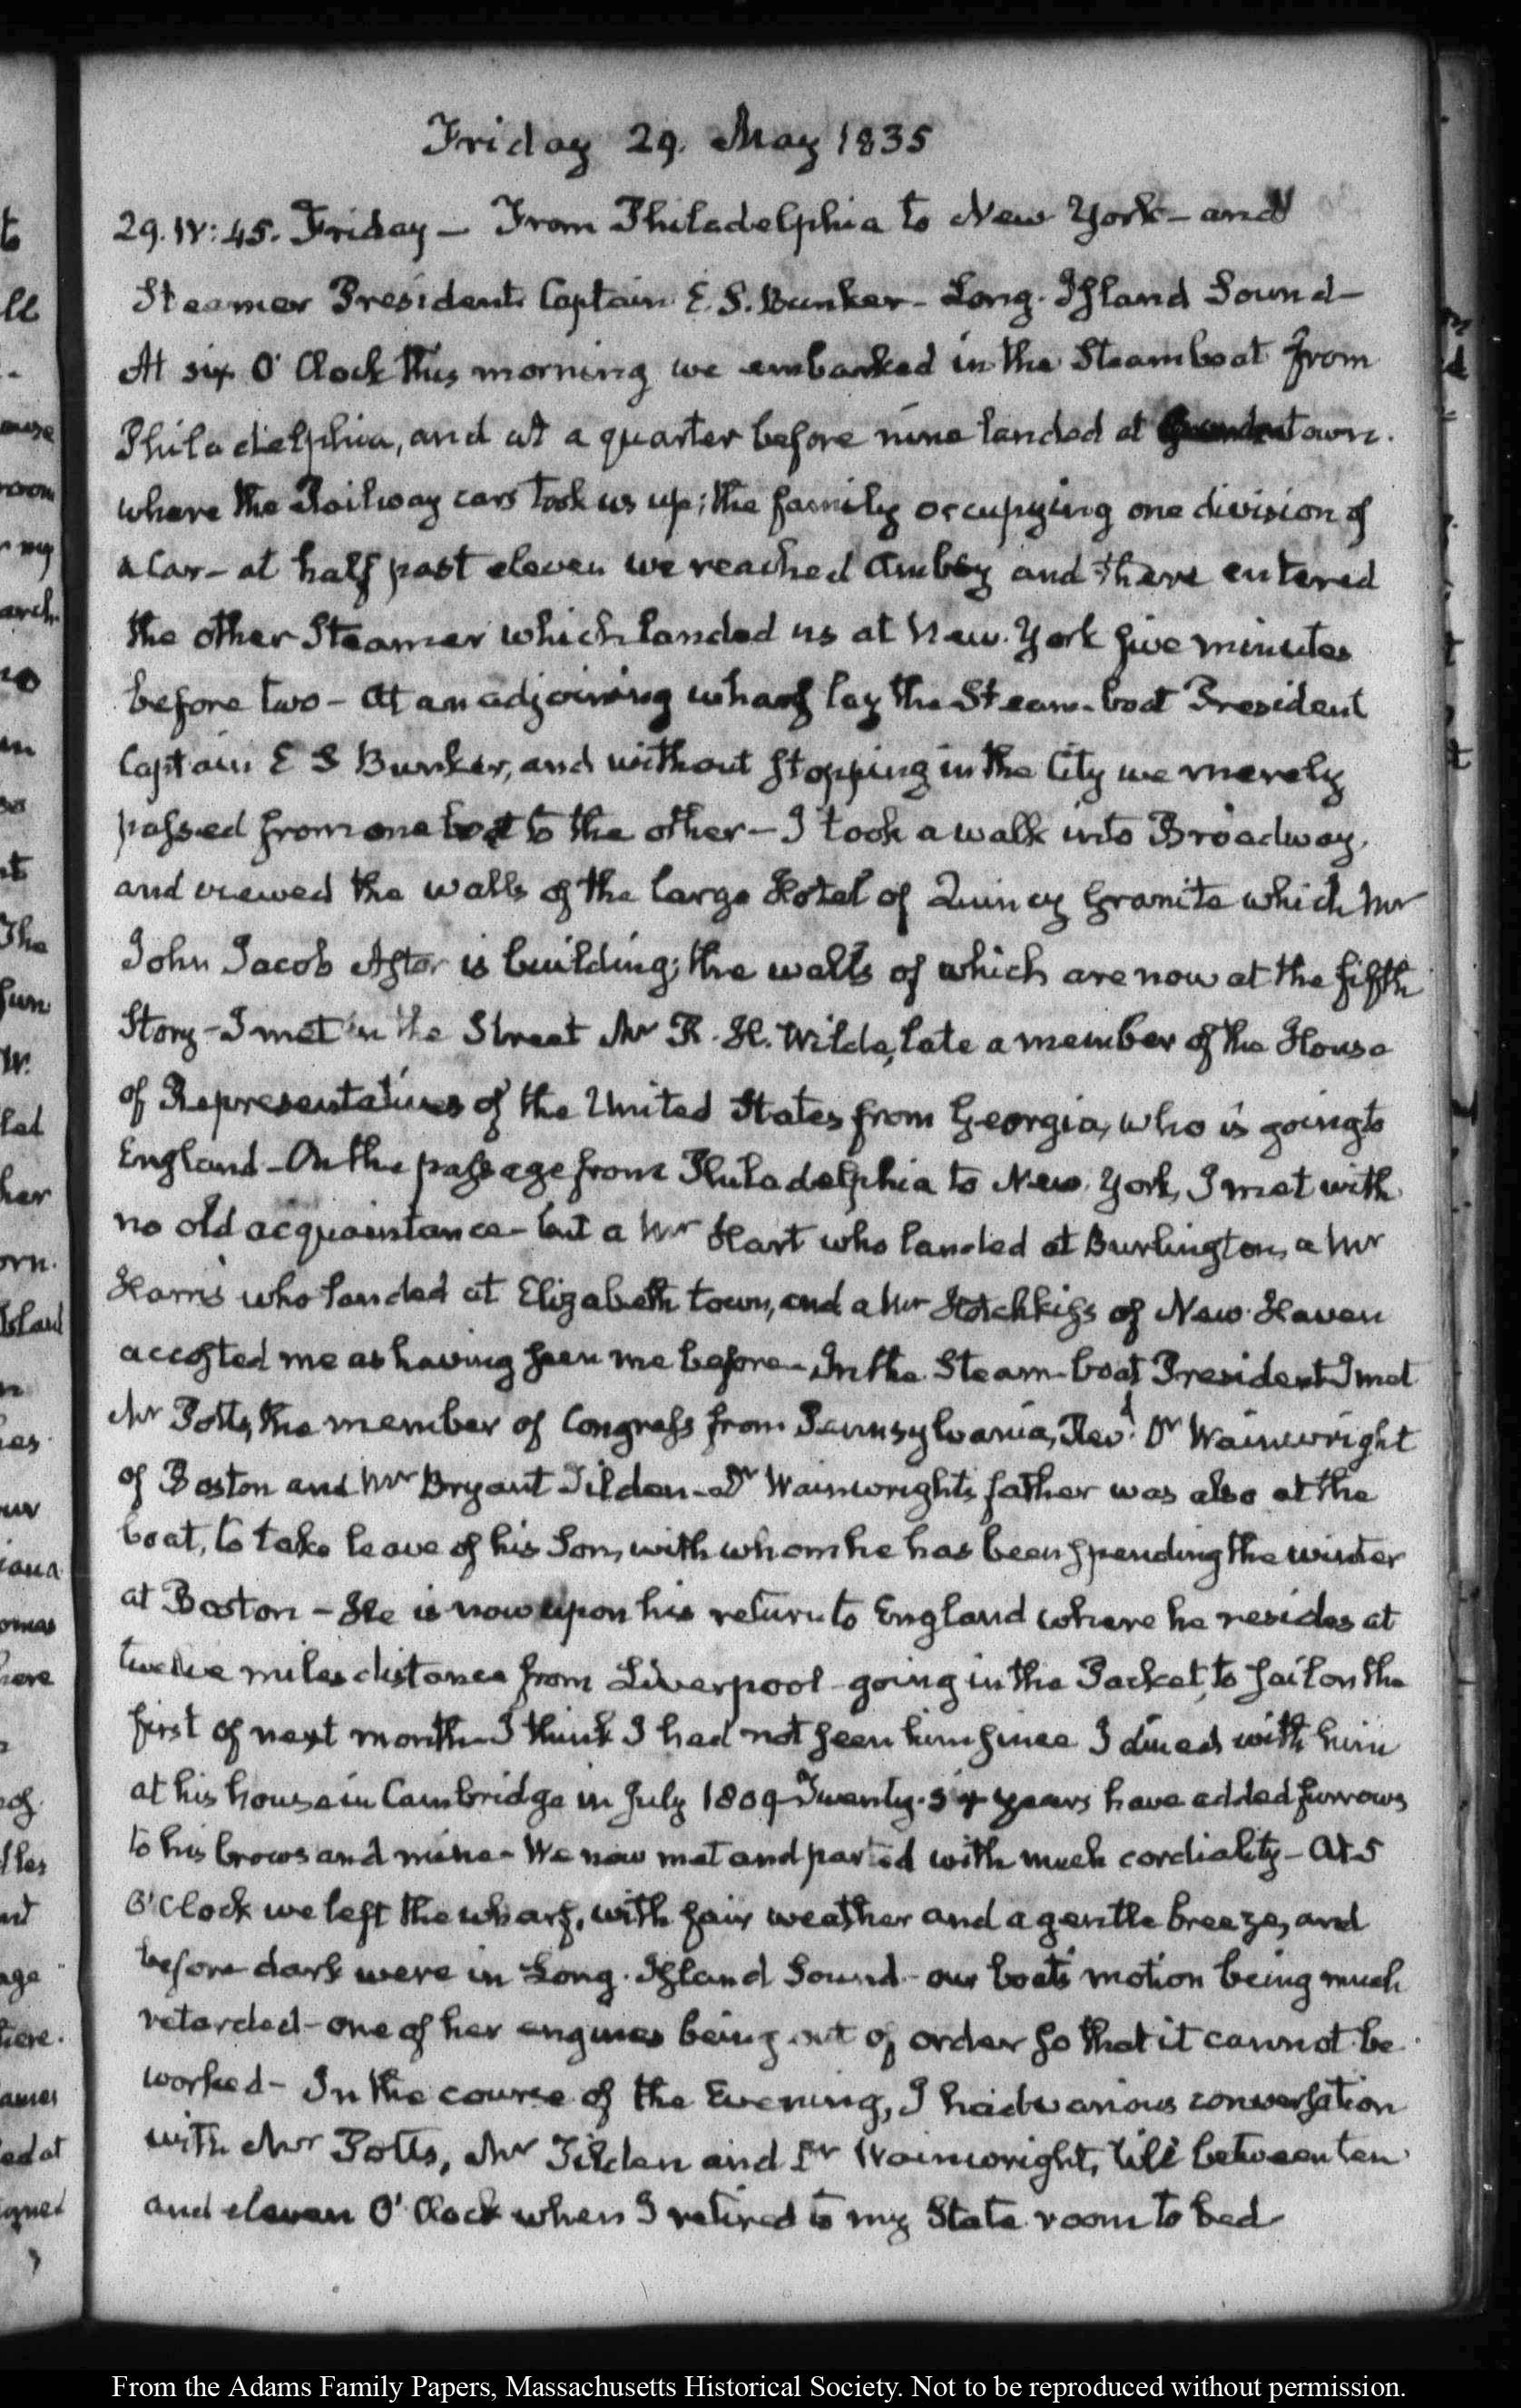 Friday 29. May 1835
29. IV:45. Friday — From Philadelphia to New York — and
Steamer President. Captain E. S. Bunker — Long-Island Sound —
At six O'Clock this morning we embarked in the Steamboat from
Philadelphia, and at a quarter before nine landed at town.
where the Railway cars took us up; the family occupying one division of
a Car — at half past eleven we reached Amboy and there entered
the other Steamer which landed us at New-York five minutes
before two — At an adjoining wharf lay the Steam-boat President
Captain E S Bunker, and without stopping in the City we merely
passed from one boat to the other — I took a walk into Broadway,
and viewed the walls of the large Hotel of Quincy Granite which Mr
John Jacob Astor is building; the walls of which are now at the fifth
Story — I met in the Street Mr R. H. Wilde, late a member of the House
of Representatives of the United States from Georgia, who is going to
England — On the passage from Philadelphia to New-York, I met with
no old acquaintance — but a Mr Hart who landed at Burlington, a Mr
Harris who landed at Elizabeth town, and a Mr Hotchkiss of New-Haven
accosted me as having seen me before — In the Steam-boat President I met
Mr Potts, the member of Congress from Pennsylvania, Revd. Dr Wainwright
of Boston and Mr Bryant Tilden — Dr Wainwright's father was also at the
boat, to take leave of his Son, with whom he has been spending the winter
at Boston — He is now upon his return to England where he resides at
twelve miles distance from Liverpool — going in the Packet, to sail on the
first of next month — I think I had not seen him since I dined with him
at his house in Cambridge in July 1809 — Twenty-six years have added furrows
to his brows and mine — We now met and parted with much cordiality — At 5
O'Clock we left the wharf, with fair weather and a gentle breeze, and
before dark were in Long-Island Sound — our boat's motion being much
retarded — one of her engines being out of order so that it cannot be
worked — In the course of the Evening, I had various conversation
with Mr Potts, Mr Tilden and Dr Wainwright, till between ten
and eleven O'Clock when I retired to my State room to bed
From the Adams Family Papers, Massachusetts Historical Society. Not to be reproduced without permission.